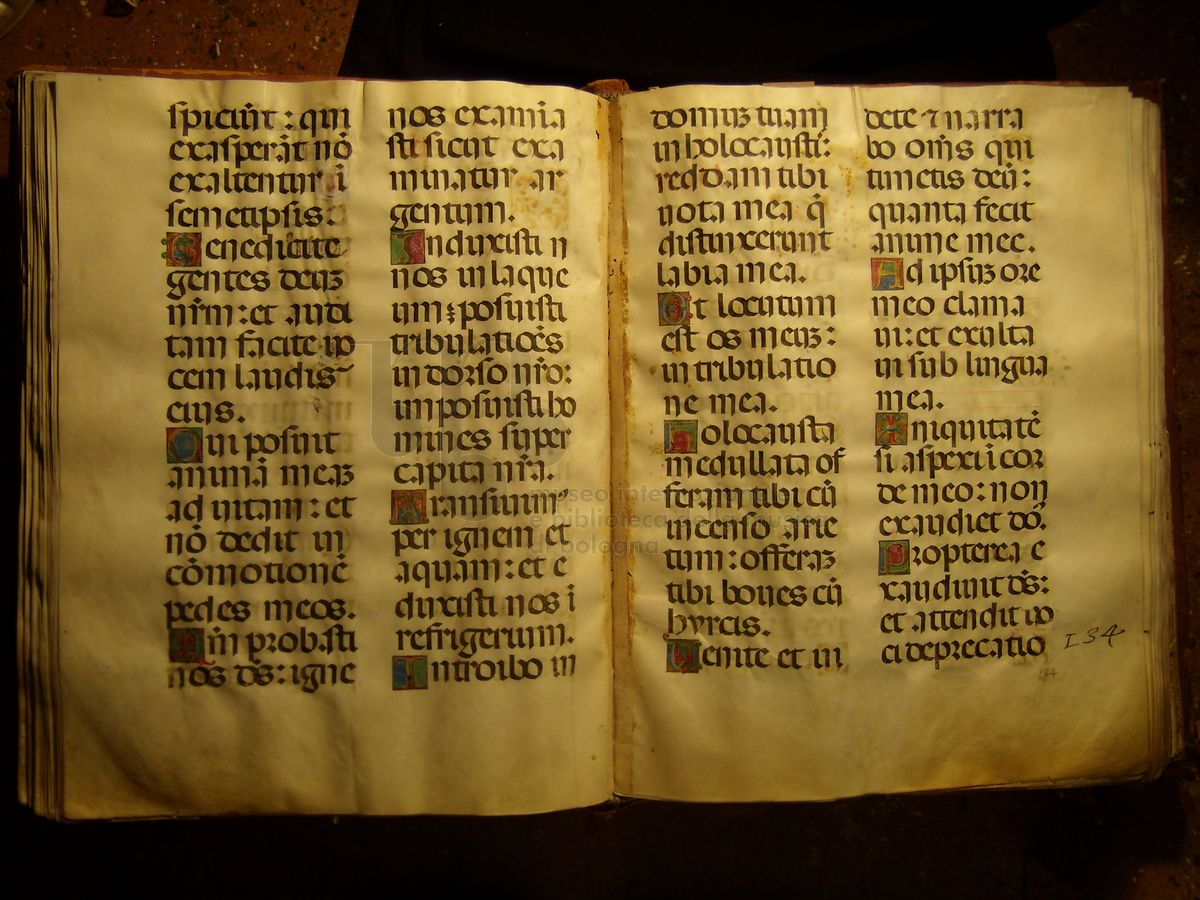 spiciūt : qui
exasperāt nō
exaltentur ī
semetipsis.
Benedicite
gentes deuʒ
nr̄m : et audi
tam facite uo
cem laudis
eius.
Qui posuit
animā meaʒ
ad uitam : et
nō dedit in
cōmotionē
pedes meos.
Qm̄ probasti
nos ds̄ : igne
nos examīa
sti sicut exa
minatur ar
gentum.
Induxisti n
nos in laque
um ⁊ posuisti
tribulatiōes
in dorso nr̄o :
imposuisti ho
mines super
capita nr̄a.
Transiuimꝰ
per ignem et
aquam : et e
duxisti nos ī
refrigerium.
Introibo in
domuʒ tuam
in holocausti :
reddam tibi
uota mea q̄
distinxerunt
labia mea.
Et locutum
est os meuʒ :
in tribulatio
ne mea.
Holocausta
medullata of
feram tibi cū
incenso arie
tum : offeraʒ
tibi boues cū
hyrcis.
Uenite et au
dete ⁊ narra
bo om̄s qui
timetis deū :
quanta fecit
anime mee.
Ad ipsuʒ ore
meo clama
ui : et exulta
ui sub lingua
mea.
Iniquitatē
si aspexi ī cor
de meo : non
exaudiet dō.
Propterea e
xaudiuit ds̄ :
et attendit uo
ci deprecatio
134
134
museo inte
e biblioteca
di bologna